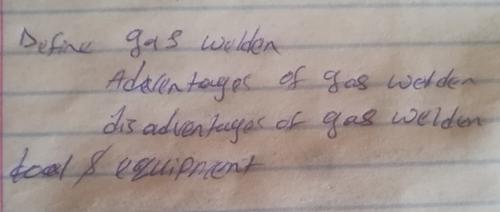 Define gas welden
Adventages of gas welden
disadventages of gas welden
tool & equipment